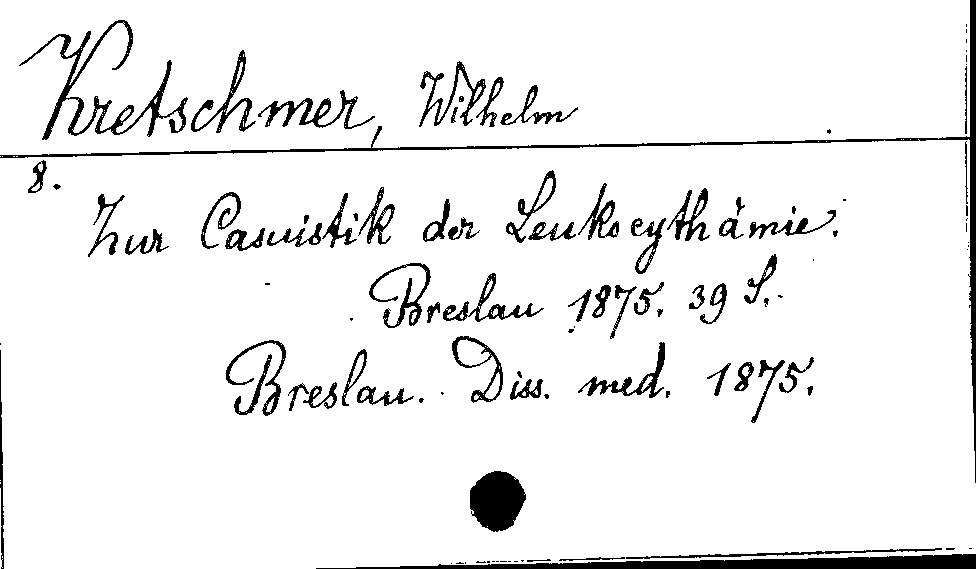 Kretschmer, Wilhelm
8.
Zur Casuistik der Leukocythämie.
Breslau 1875. 39 S.
Breslau. Diss. med. 1875.